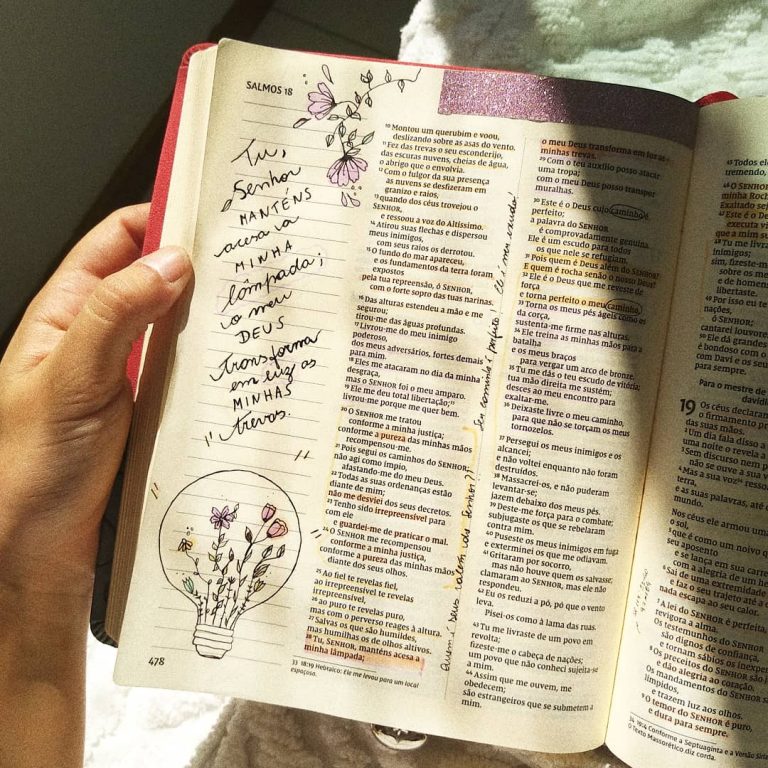 SALMOS 18
Tu,
Senhor
MANTÉNS
acesa a
MINHA
lâmpada;
o meu
DEUS
transforma
em luz as
MINHAS
trevas.
478
10 Montou um querubim e voou,
deslizando sobre as asas do vento.
11 Fez das trevas o seu esconderijo,
das escuras nuvens, cheias de água,
o abrigo que o envolvia.
12 Com o fulgor da sua presença
as nuvens se desfizeram em
granizo e raios,
13 quando dos céus trovejou o
SENHOR,
e ressoou a voz do Altíssimo.
14 Atirou suas flechas e dispersou
meus inimigos,
com seus raios os derrotou.
15 O fundo do mar apareceu,
e os fundamentos da terra foram
expostos
pela tua repreensão, ó SENHOR,
com o forte sopro das tuas narinas.
16 Das alturas estendeu a mão e me
segurou;
tirou-me das águas profundas.
17 Livrou-me do meu inimigo
poderoso,
dos meus adversários, fortes demais
para mim.
18 Eles me atacaram no dia da minha
desgraça,
mas o SENHOR foi o meu amparo.
19 Ele me deu total libertação;33
livrou-me porque me quer bem.
20 O SENHOR me tratou
conforme a minha justiça;
conforme a pureza das minhas mãos
recompensou-me.
21 Pois segui os caminhos do SENHOR;
não agi como ímpio,
afastando-me do meu Deus.
22 Todas as suas ordenanças estão
diante de mim;
não me desviei dos seus decretos.
23 Tenho sido irrepreensível para
com ele
e guardei-me de praticar o mal.
24 O SENHOR me recompensou
conforme a minha justiça,
conforme a pureza das minhas mãos
diante dos seus olhos.
25 Ao fiel te revelas fiel,
ao irrepreensível te revelas
irrepreensível,
26 ao puro te revelas puro,
mas com o perverso reages à altura.
27 Salvas os que são humildes,
mas humilhas os de olhos altivos.
28 Tu, SENHOR, manténs acesa a
minha lâmpada;
33 18:19 Hebraico: Ele me levou para um local
espaçoso.
Quem é Deus além do Senhor?! Seu caminho é perfeito! Ele é meu escudo!
o meu Deus transforma em luz as
minhas trevas.
29 Com o teu auxílio posso atacar
uma tropa;
com o meu Deus posso transpor
muralhas.
30 Este é o Deus cujo caminho é
perfeito;
a palavra do SENHOR
é comprovadamente genuína.
Ele é um escudo para todos
os que nele se refugiam.
31 Pois quem é Deus além do SENHOR?
E quem é rocha senão o nosso Deus?
32 Ele é o Deus que me reveste de
força
e torna perfeito o meu caminho.
33 Torna os meus pés ágeis como os
da corça,
sustenta-me firme nas alturas.
34 Ele treina as minhas mãos para a
batalha
e os meus braços
para vergar um arco de bronze.
35 Tu me dás o teu escudo de vitória;
tua mão direita me sustém;
desces ao meu encontro para
exaltar-me.
36 Deixaste livre o meu caminho,
para que não se torçam os meus
tornozelos.
37 Persegui os meus inimigos e os
alcancei;
e não voltei enquanto não foram
destruídos.
38 Massacrei-os, e não puderam
levantar-se;
jazem debaixo dos meus pés.
39 Deste-me força para o combate;
subjugaste os que se rebelaram
contra mim.
40 Puseste os meus inimigos em fuga
e exterminei os que me odiavam.
41 Gritaram por socorro,
mas não houve quem os salvasse;
clamaram ao SENHOR, mas ele não
respondeu.
42 Eu os reduzi a pó, pó que o vento
leva.
Pisei-os como à lama das ruas.
43 Tu me livraste de um povo em
revolta;
fizeste-me o cabeça de nações;
um povo que não conheci sujeita-se
a mim.
44 Assim que me ouvem, me
obedecem;
são estrangeiros que se submetem a
mim.
45 Todos ele
tremendo,
46 O SENHOR
minha Roch
Exaltado sej
47 Este é o De
executa vi
que a mim su
48 Tu me livra
inimigos;
sim, fizeste-m
sobre os me
e de homens
libertaste.
49 Por isso eu te
nações,
ó SENHOR;
cantarei louvore
50 Ele dá grandes
é bondoso com o
com Davi e os seu
para sempre.
Para o mestre de
davídi
19 Os céus declaran
o firmamento pr
das suas mãos.
2 Um dia fala disso a
uma noite o revela a
3 Sem discurso nem pa
não se ouve a sua vo
4 Mas a sua voz34 resso
terra,
e as suas palavras, até o
mundo.
Nos céus ele armou uma
o sol,
5 que é como um noivo q
seu aposento
e se lança em sua carre
com a alegria de um he
6 Sai de uma extremidade
e faz o seu trajeto até a o
nada escapa ao seu calor.
7 A lei do SENHOR é perfeita,
revigora a alma.
Os testemunhos do SENHOR
são dignos de confiança,
e tornam sábios os inexpe
8 Os preceitos do SENHOR são
e dão alegria ao coração.
Os mandamentos do SENHOR sã
límpidos,
e trazem luz aos olhos.
9 O temor do SENHOR é puro,
e dura para sempre.
34 19:4 Conforme a Septuaginta e a Versão Siría
O Texto Massorético diz corda.